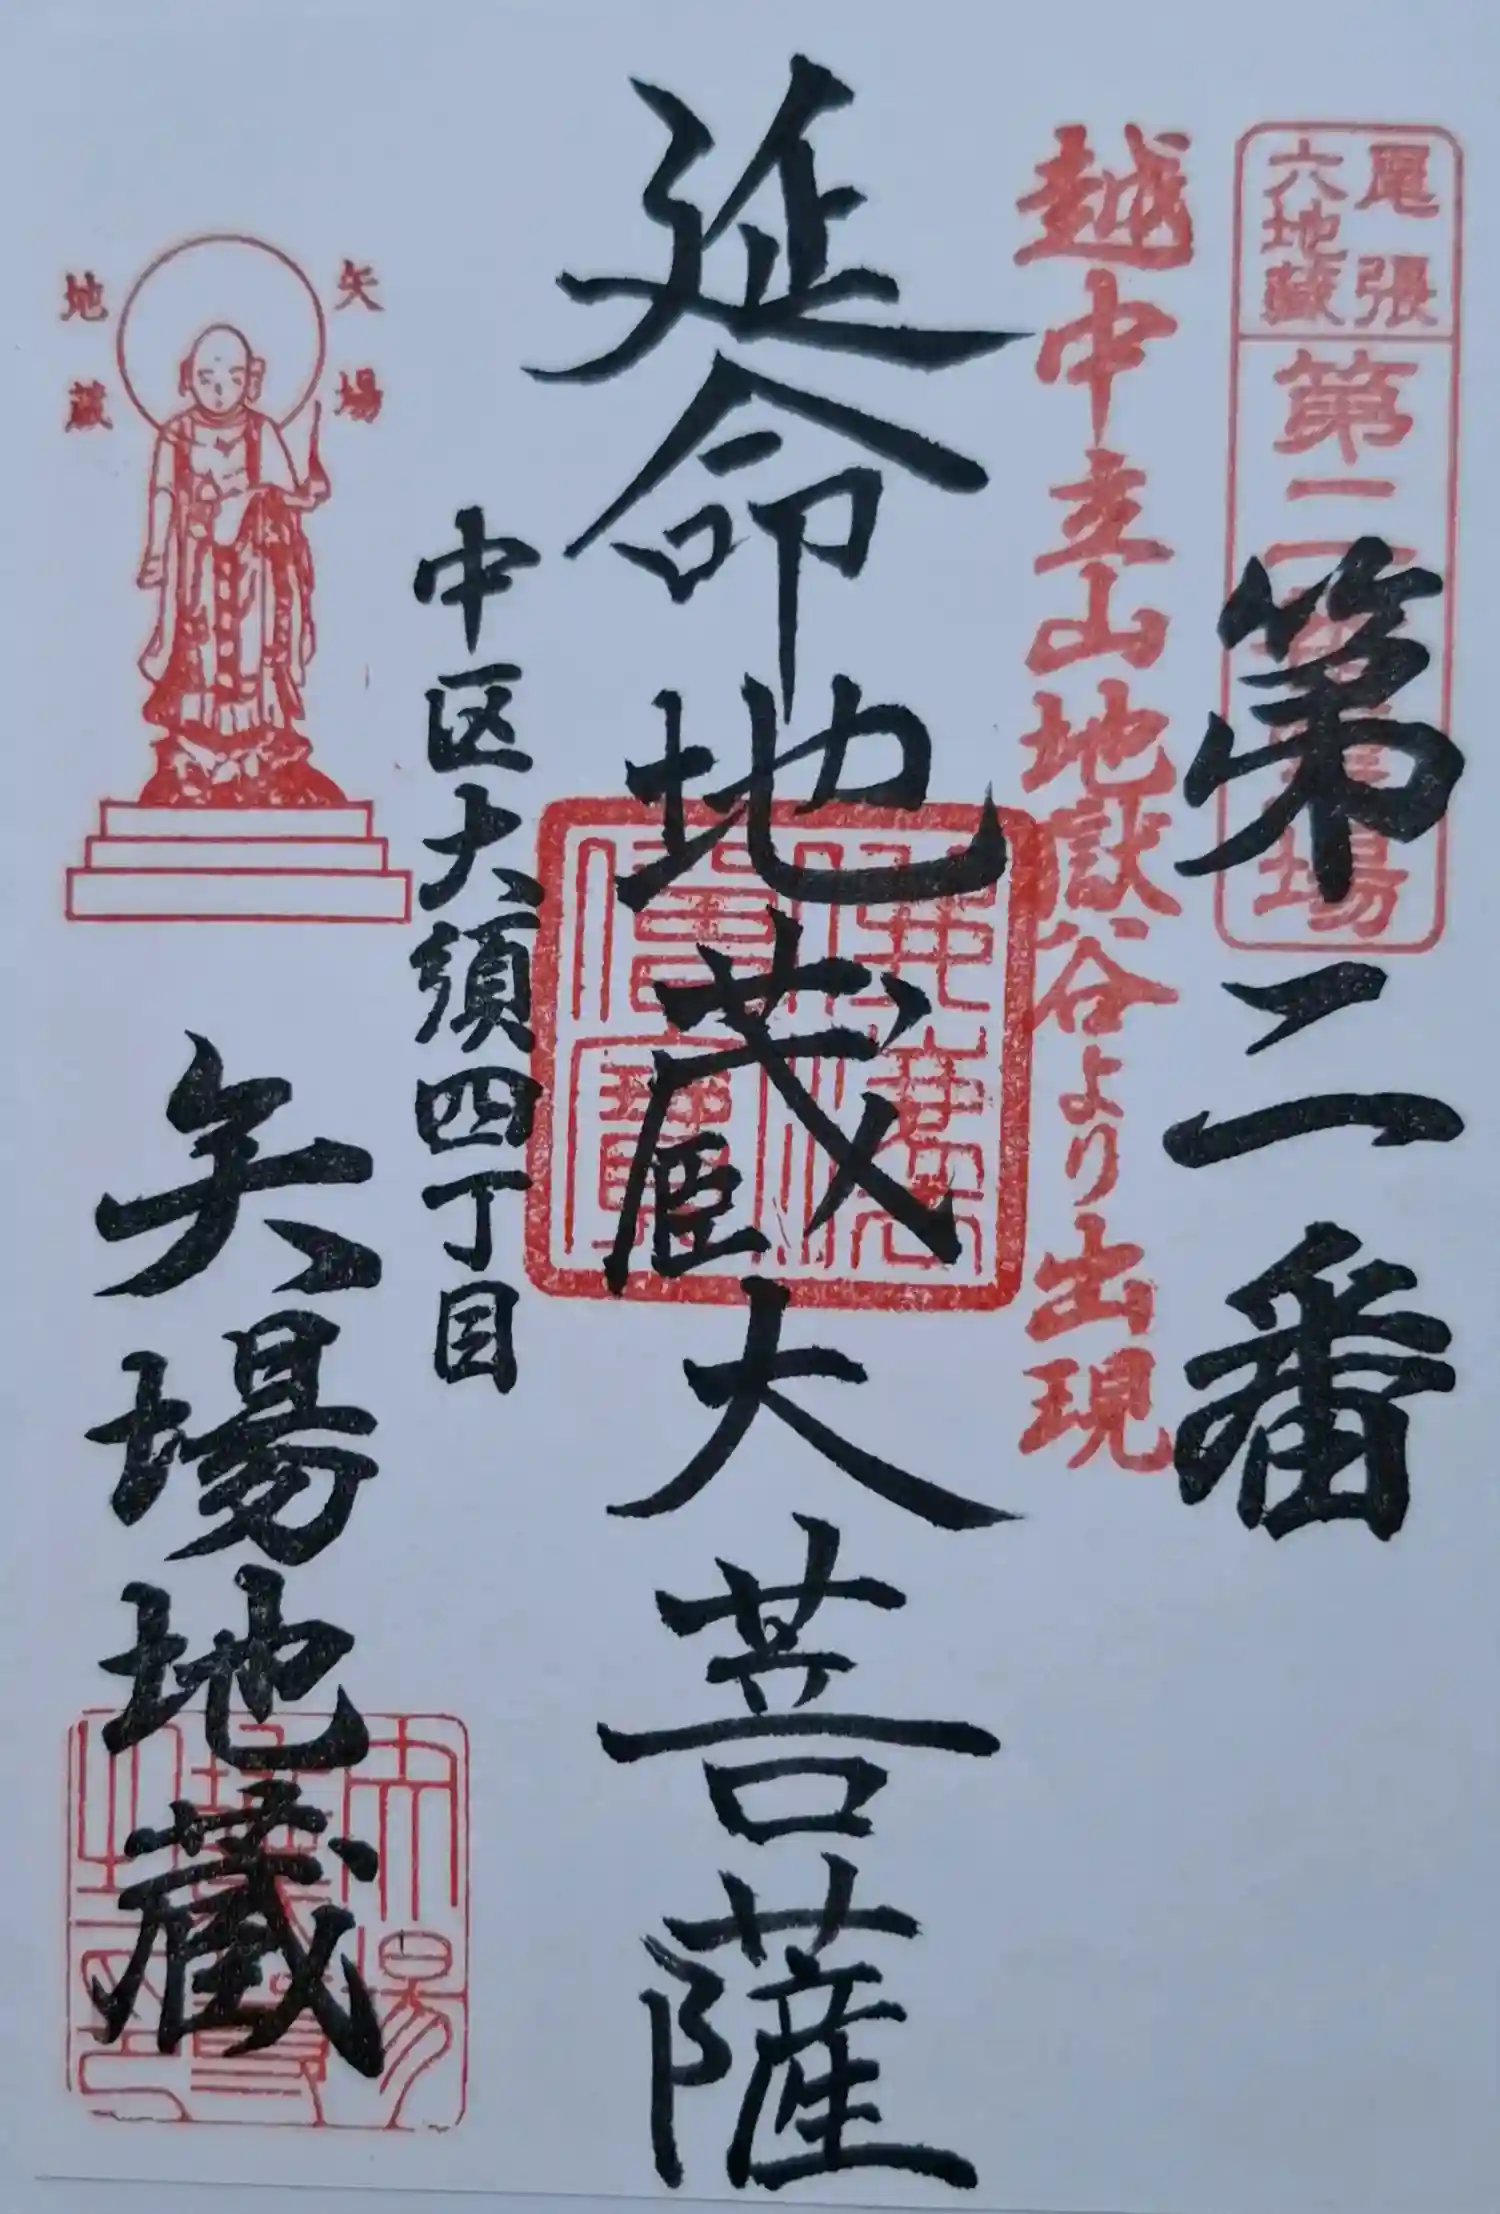 尾張
六地蔵
第二番霊場
第二番
越中立山地獄谷より出現
延命地蔵大菩薩
中区大須四丁目
矢場
地蔵
矢場地蔵